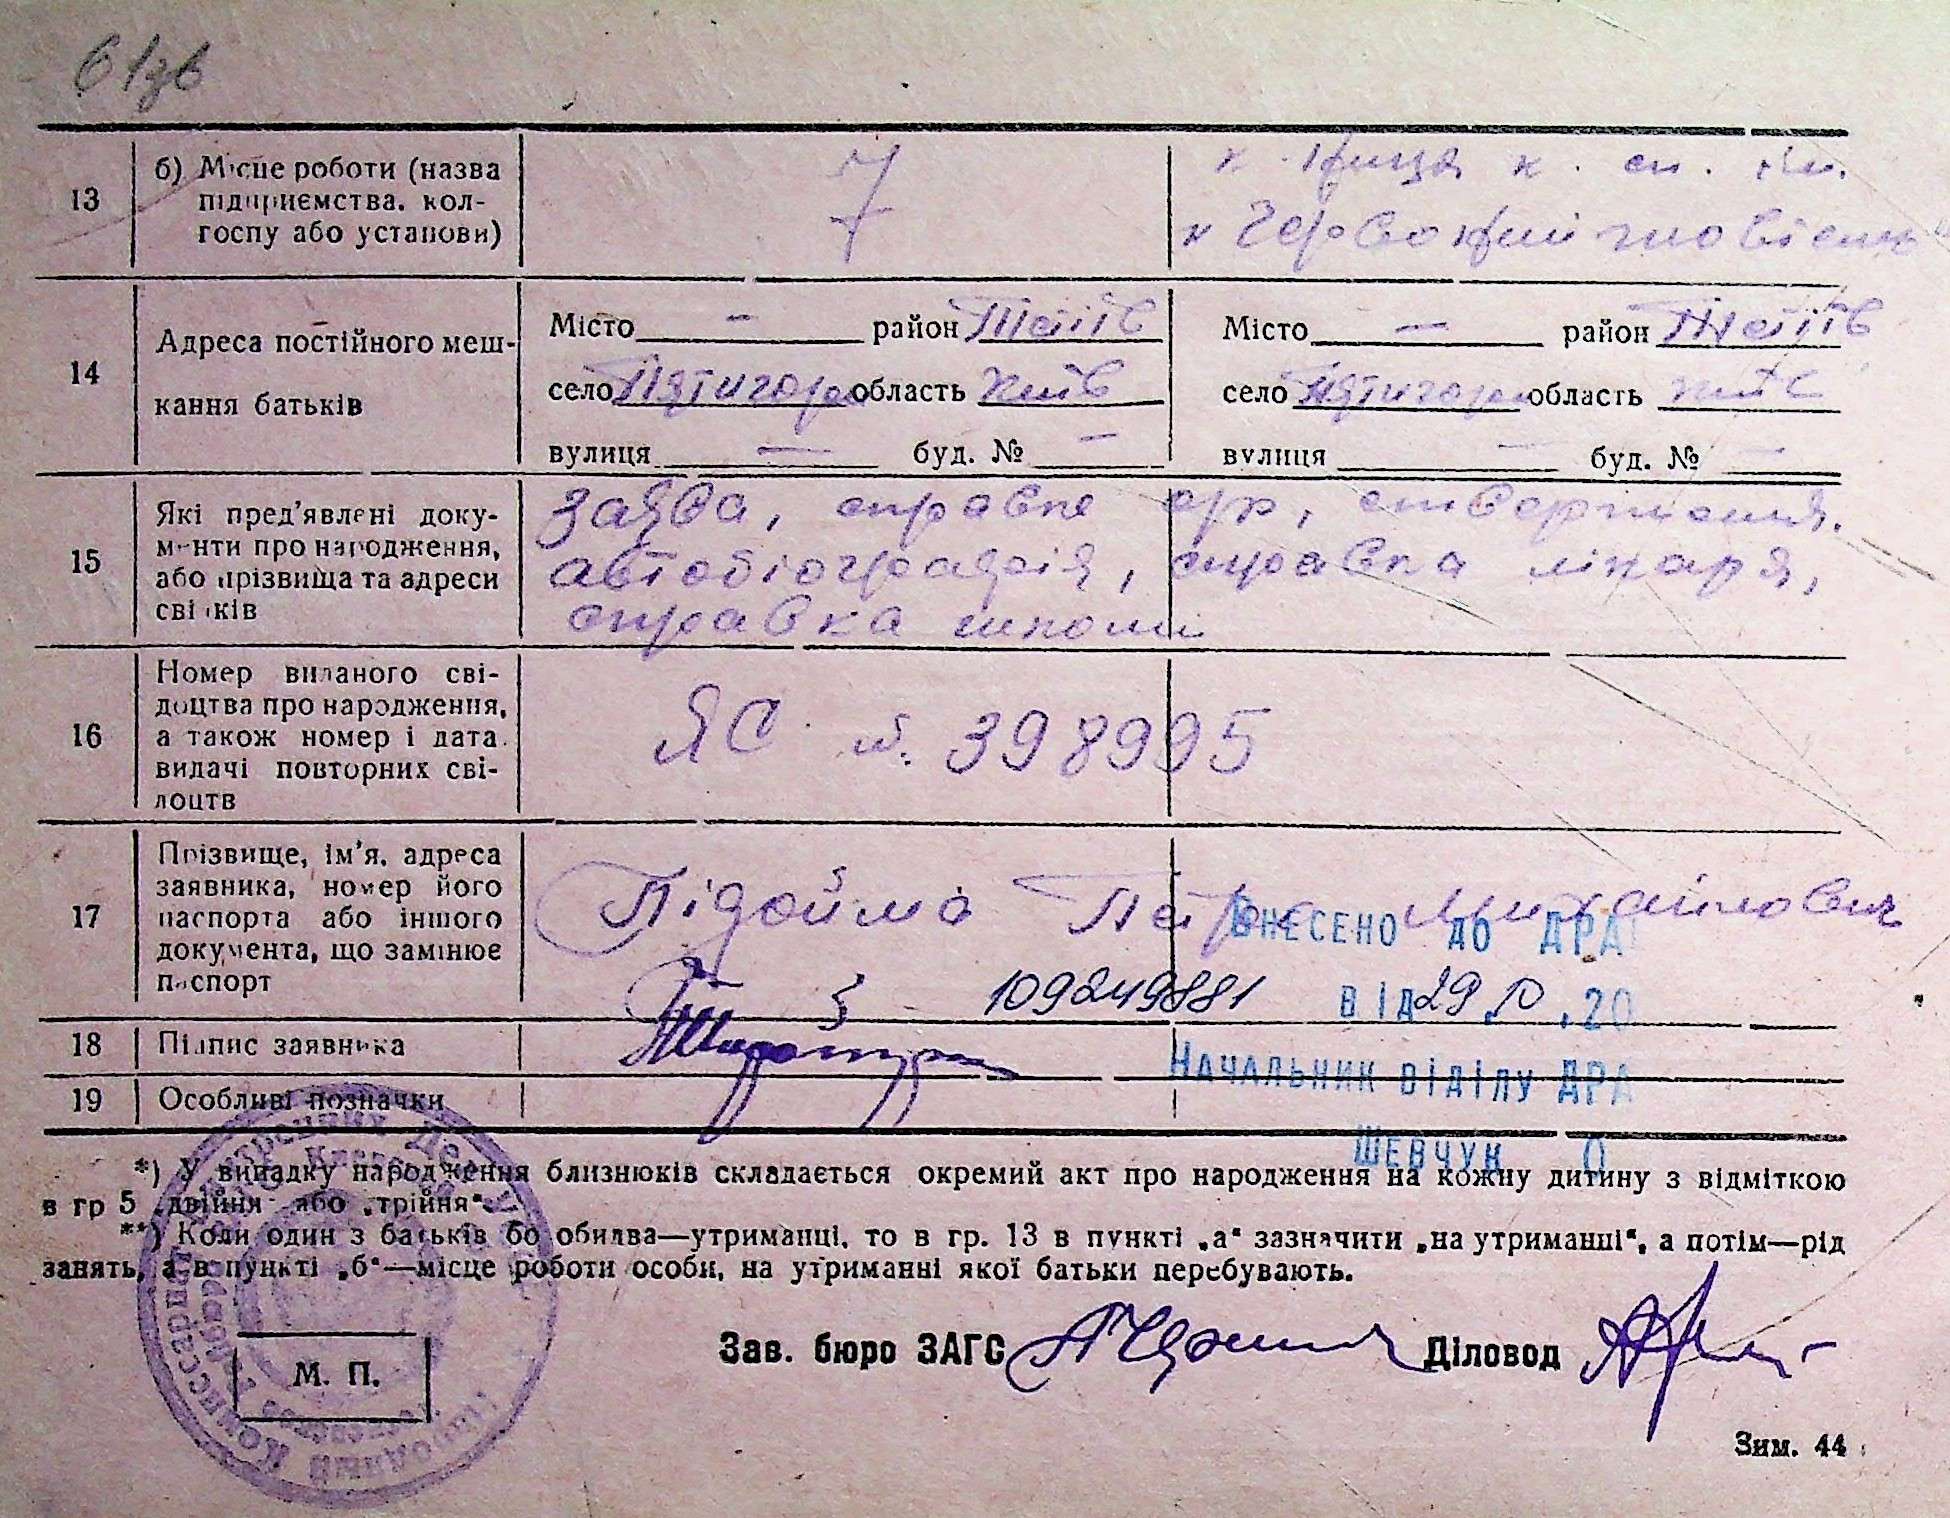 13
б) Місце роботи (назва
підприємства, кол-
госпу або установи)
к
к. сп. ім.
Червоний
14
Адреса постійного меш-
кання батьків
Місто — район Тетіїв
село Пятигори область Київ
вулиця — буд. № —
Місто — район Тетіїв
село Пятигори область Київ
вулиця — буд. № —
15
Які пред'явлені доку-
менти про народження,
або прізвища та адреси
свідків
заява, справка
автобіографія, справка лікаря,
справка школи
16
Номер виданого сві-
доцтва про народження,
а також номер і дата
видачі повторних сві-
доцтв
ЯС № 398995
17
Прізвище, ім'я, адреса
заявника, номер його
паспорта або іншого
документа, що замінює
паспорт
Підойма Петро Михайлович
109249881
Внесено до ДРА
від 29.10.20
18
Підпис заявника
Начальник відділу ДРА
19
Особливі позначки
Шевчук О
*) У випадку народження близнюків складається окремий акт про народження на кожну дитину з відміткою
в гр 5 „двійня" або „трійня".
**) Коли один з батьків бо обидва—утриманці, то в гр. 13 в пункті „а" зазначити „на утриманні", а потім—рід
занять, а в пункті „б"—місце роботи особи, на утриманні якої батьки перебувають.
Зав. бюро ЗАГС
Діловод
М. П.
Зим. 44